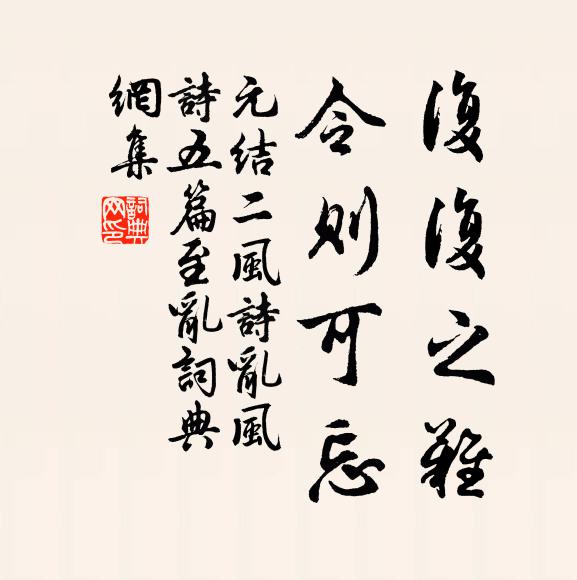 復復之難
令則可忘
元結二風詩亂風
詩五篇至亂詞典
網集
詞典
网印